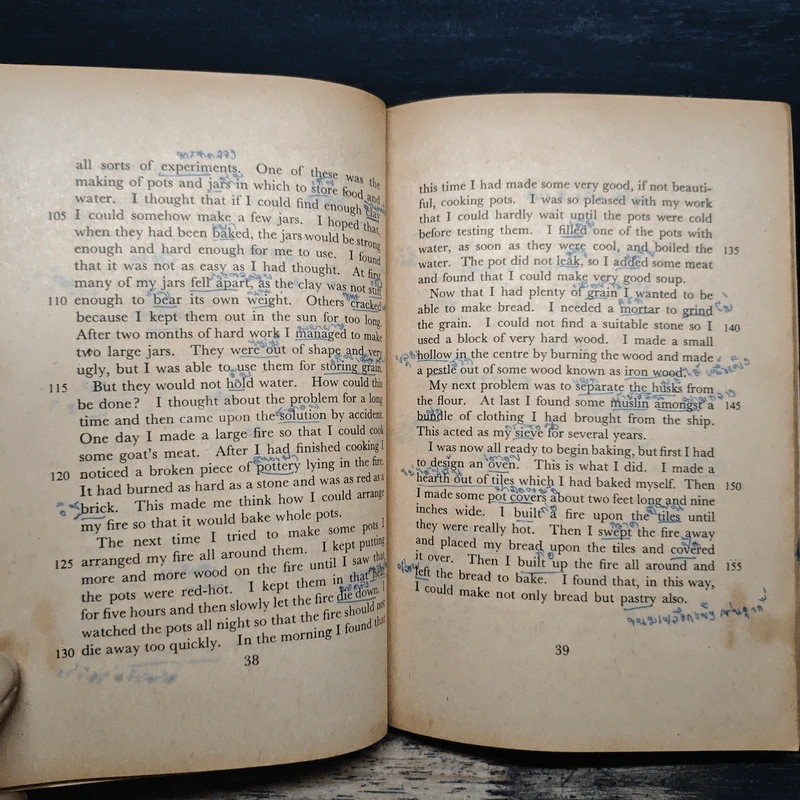 all sorts of experiments. One of these was the
making of pots and jars in which to store food and
water. I thought that if I could find enough clay
105 I could somehow make a few jars. I hoped that,
when they had been baked, the jars would be strong
enough and hard enough for me to use. I found
that it was not as easy as I had thought. At first
many of my jars fell apart, as the clay was not stiff
110 enough to bear its own weight. Others cracked
because I kept them out in the sun for too long.
After two months of hard work I managed to make
two large jars. They were out of shape and very
ugly, but I was able to use them for storing grain.
115 But they would not hold water. How could this
be done? I thought about the problem for a long
time and then came upon the solution by accident.
One day I made a large fire so that I could cook
some goat's meat. After I had finished cooking I
120 noticed a broken piece of pottery lying in the fire.
It had burned as hard as a stone and was as red as a
brick. This made me think how I could arrange
my fire so that it would bake whole pots.
The next time I tried to make some pots I
125 arranged my fire all around them. I kept putting
more and more wood on the fire until I saw that
the pots were red-hot. I kept them in that heat
for five hours and then slowly let the fire die down. I
watched the pots all night so that the fire should not
130 die away too quickly. In the morning I found that
38
this time I had made some very good, if not beauti-
ful, cooking pots. I was so pleased with my work
that I could hardly wait until the pots were cold
before testing them. I filled one of the pots with
water, as soon as they were cool, and boiled the 135
water. The pot did not leak, so I added some meat
and found that I could make very good soup.
Now that I had plenty of grain I wanted to be
able to make bread. I needed a mortar to grind
the grain. I could not find a suitable stone so I 140
used a block of very hard wood. I made a small
hollow in the centre by burning the wood and made
a pestle out of some wood known as iron wood.
My next problem was to separate the husks from
the flour. At last I found some muslin amongst a 145
bundle of clothing I had brought from the ship.
This acted as my sieve for several years.
I was now all ready to begin baking, but first I had
to design an oven. This is what I did. I made a
hearth out of tiles which I had baked myself. Then 150
I made some pot covers about two feet long and nine
inches wide. I built a fire upon the tiles until
they were really hot. Then I swept the fire away
and placed my bread upon the tiles and covered
it over. Then I built up the fire all around and 155
left the bread to bake. I found that, in this way,
I could make not only bread but pastry also.
39